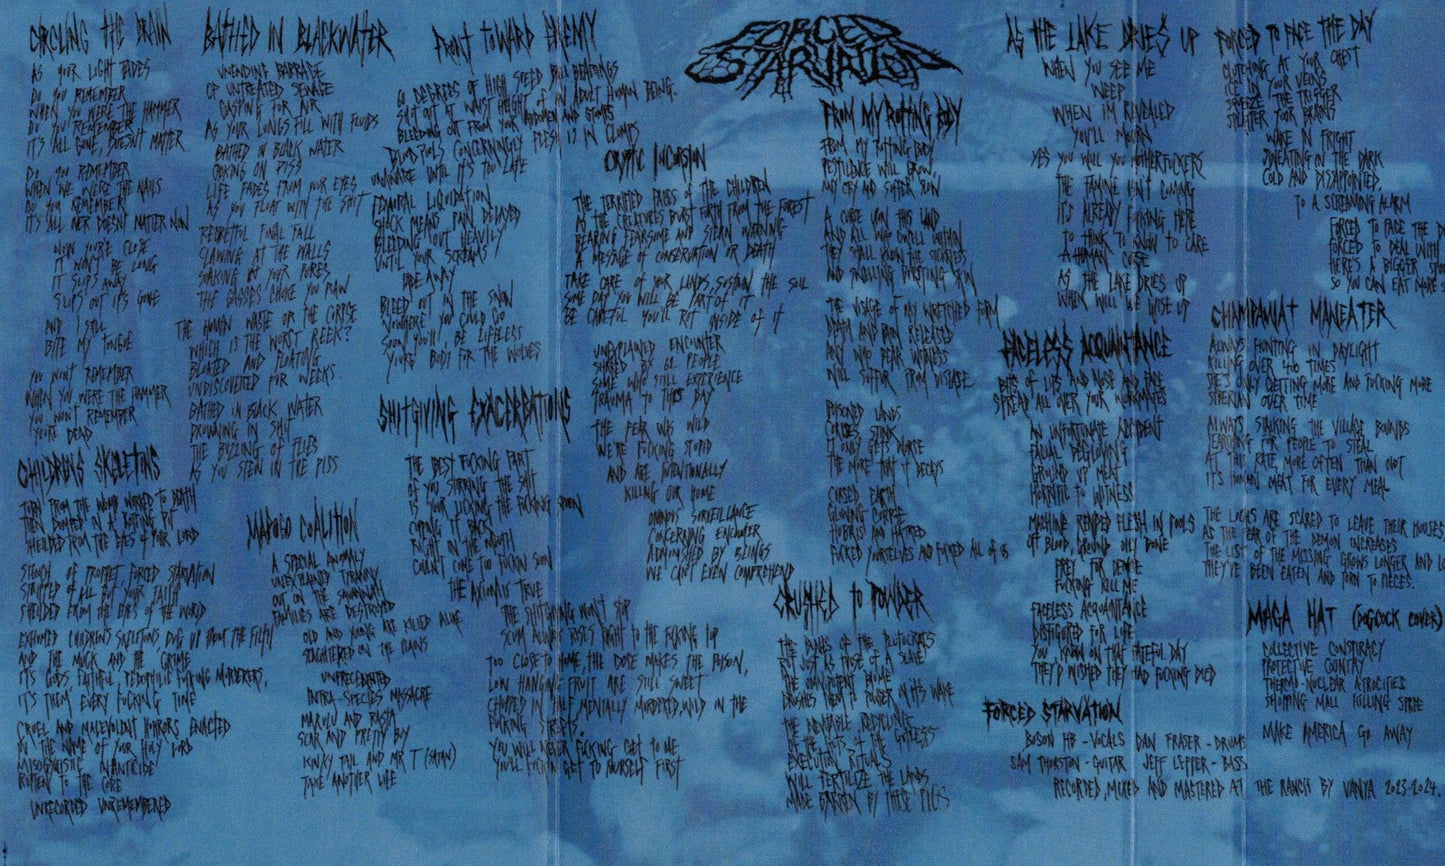 CIRCLING THE DRAIN
AS YOUR LIGHT FADES
DO YOU REMEMBER
WHEN YOU WERE THE HAMMER
DO YOU REMEMBER
IT'S ALL GONE, DOESN'T MATTER
DO YOU REMEMBER
WHEN WE WERE THE NAILS
DO YOU REMEMBER
IT'S ALL OVER DOESN'T MATTER NOW
NOW YOU'RE CLOSE
IT WON'T BE LONG
IT SLIPS AWAY
SLIPS OUT IT'S GONE
AND I STILL
BITE MY TONGUE
YOU WON'T REMEMBER
WHEN YOU WERE THE HAMMER
YOU WON'T REMEMBER
YOU'RE DEAD
CHILDRENS SKELETONS
TORN FROM THE WOMB WORKED TO DEATH
THEN DUMPED IN A ROTTING PIT
SHEILDED FROM THE EYES OF YOUR LORD
OF PROPHET, FORCED STARVATION
STRIPPED OF ALL BUT YOUR FAITH
SHEILDED FROM THE EYES OF THE WORLD
EXHUMED CHILDRON'S SKELETIONS DUG UP FROM THE FILTH
AND THE MUCK AND THE GRIME
IT'S GODS FAITHFUL PEDOPHILE FUCKING MURDERERS,
IT'S THEM EVERY FUCKING TIME
CRUEL AND MALEVOLENT HORRORS ENACTED
IN THE NAME OF YOUR HOLY LORD
MISOGYNISTIC INFANTICIDE
ROTTEN TO THE CORE
UNRECORDED UNREMEMBERED
BATHED IN BLACKWATER
UNENDING BARRAGE
OF UNTREATED SEWAGE
GASPING FOR AIR
AS YOUR LUNGS FILL WITH FLUIDS
BATHED IN BLACK WATER
CHOKING ON PISS
LIFE FADES FROM YOUR EYES
AS YOU FLOAT WITH THE SHIT
REGRETFUL FINAL FALL
CLAWING AT THE WALLS
SOAKING IN YOUR PORES
THE GASSES CHOKE YOU RAW
THE HUMAN WASTE OR THE CORPSE
WHICH IS THE WORST REEK?
BLOATED AND FLOATING
UNDISCOVERED FOR WEEKS.
BATHED IN BLACK WATER
DROWNING IN SHIT
THE BUZZING OF FLIES
AS YOU STEW IN THE PISS
MAPOGO COALITION
A SPECIAL ANOMALY
UNEXPLAINED TYRANNY
OUT ON THE SAVANNAH
FAMILIES ARE DESTROYED
OLD AND YOUNG ARE KILLED ALIVE
SLAGHTERED ON THE PLAINS
UNPRECEDENTED
INTRA-SPECIES MASSACRE
MAKULU AND RASTA
SCAR AND PRETTY BOY
KINKY TAIL AND MR T (SATAN)
TAKE ANOTHER LIFE
FRONT TOWARD ENEMY
60 DEGREES OF HIGH SPEED BALL BEARINGS
SHOT OUT AT WAIST HEIGHT OF AN ADULT HUMAN BEING.
BLEEDING OUT FROM YOUR ABDOMEN AND STUMPS
BLOOD POOLS CONCERNINGLY FLESH IS IN CLUMPS
UNAWARE UNTIL IT'S TOO LATE
FEMORAL LIQUIDATION
SHOCK MEANS PAIN DELAYED
BLEEDING OUT HEAVILY
UNTIL YOUR SCREAMS
FADE AWAY
BLEED OUT IN THE SNOW
NOWHERE YOU COULD GO
SOON YOU'LL, BE LIFELESS
YOURE' BODY FOR THE WOLVES
SHITGIVING EXACERBATIONS
THE BEST FUCKING PART
OF YOU STIRRING THE SHIT
IS YOUR LICKING THE FUCKING SPOON
COMING IT BACK
RIGHT IN THE MOUTH
COULDN'T COME TOO FUCKIN SOON
THE AXIOM IS TRUE
THE SHITGIVING WON'T STOP
SCUM ALWAYS RISES RIGHT TO THE FUCKING TOP
TOO CLOSE TO HOME, THE DOSE MAKES THE POISON,
LOW HANGING FRUIT ARE STILL SWEET
CHOPPED IN HALF, MENTALLY MURDERED, WILD IN THE
FUCKING STREETS.
YOU WILL NEVER FUCKING GET TO ME
YOU'LL FUCKIN GET TO YOURSELF FIRST
FORCED
STARVATION
CRYPTIC INCURSION
THE TERRIFIED FACES OF THE CHILDREN
AS THE CREATURES BURST FORTH FROM THE FOREST
BEARING FEARSOME AND STERN WARNING
A MESSAGE OF CONSERVATION OR DEATH
TAKE CARE OF YOUR LANDS, SUSTAIN THE SOIL
SOME DAY YOU WILL BE PART OF IT
BE CAREFUL YOU'LL ROT INSIDE OF IT
UNEXPLAINED ENCOUNTER
SHARED BY 62 PEOPLE
SOME WHO STILL EXPERIENCE
TRAUMA TO THIS DAY
THE FEAR WAS WILD
WE'RE FUCKING STUPID
AND ARE INTENTIONALLY
KILLING OUR HOME
OMINOUS SURVEILLANCE
CONCERNING ENCOUNTER
ADMONISHED BY BEINGS
WE CAN'T EVEN COMPREHEND
FROM MY ROTTING BODY
FROM MY ROTTING BODY
PESTILENCE WILL GROW,
MY CRY AND SUFFER SLOW
A CURSE UPON THIS LAND
AND ALL WHO DWELL WITHIN
THEY SHALL KNOW THE SICKNESS
AND SWELLING BURSTING SKIN
THE VISAGE OF MY WRETCHED FORM
DEATH AND PAIN RELEASED
ANY WHO BEAR WITNESS
WILL SUFFUR FROM DISEASE
POISONED LANDS
CORPSES STINK
IT ONLY GETS WORSE
THE MORE THAT IT DECAYS
CURSED EARTH
GLOWING CORPSE
HUBRIS AND HATRED
FUCKED YOURSELVES AND FUCKED ALL OF US
CRUSHED TO POWDER
THE BONES OF THE PLUTOCRATS
ROT JUST AS THOSE OF A SLAVE
THE OMNIPOTENT HOME
CRUSHES THEM TO POWDER IN ITS WAKE
THE INEVITABLE RECYCLING
OF THE HOSTS OF THE GUTLESS
EXECUTION RITUALS
WILL FERTILIZE THE LANDS
MADE BARREN BY THESE PIGS
AS THE LAKE DRIES UP
WHEN YOU SEE ME
WEEP
WHEN I'M REVEALED
YOU'LL MOURN
YES YOU WILL YOU MOTHERFUCKERS
THE FAMINE ISN'T COMING
IT'S ALREADY FUCKING HERE
TO THINK TO KNOW TO CARE
A HUMAN CURSE
AS THE LAKE DRIES UP
WHEN WILL WE WISE UP
FACELESS ACQUAINTANCE
BITS OF LIPS AND NOSE AND FACE
SPREAD ALL OVER YOUR WORKMATES
AN UNFORTUNATE ACCIDENT
FACIAL DEGLOVING
GROUND UP MEAT
HORRIFIC TO WITNESS
MACHINE RENDED FLESH IN POOLS
OF BLOOD, GROUND ONLY BONE
PREY FOR DEMISE
FUCKING KILL ME
FACELESS ACQUAINTANCE
DISFIGURED FOR LIFE
YOU KNOW ON THAT FATEFUL DAY
THEY'D WISHED THEY HAD FUCKING DIED
FORCED STARVATION
BOSON HB - VOCALS DAN FRASER - DRUMS
SAM THORSTON - GUITAR JEFF LEPPER - BASS
RECORDED, MIXED AND MASTERED AT THE RANCH BY VANYA 2023-2024.
FORCED TO FACE THE DAY
CLUTCHING AT YOUR CHEST
ICE IN YOUR VEINS
SQUEEZE THE TRIGGER
SPLATTER YOUR BRAINS
WAKE IN FRIGHT
SWEATING IN THE DARK
COLD AND DISAPPOINTED,
TO A SCREAMING ALARM
FORCED TO FACE THE D
FORCED TO DEAL WITH
HERE'S A BIGGER SPOON
SO YOU CAN EAT MORE S
CHAMPAWAT MANEATER
ALWAYS HUNTING IN DAYLIGHT
KILLING OVER 400 TIMES
SHE'S ONLY GETTING MORE AND FUCKING MORE
SIBERIAN OVER TIME
ALWAYS STALKING THE VILLAGE BOUNDS
SEARCHING FOR PEOPLE TO STEAL
AT THIS RATE, MORE OFTEN THAN NOT
IT'S HUMAN MEAT FOR EVERY MEAL
THE LOCALS ARE SCARED TO LEAVE THEIR HOUSES
AS THE FEAR OF THE DEMON INCREASES
THE LIST OF THE MISSING GROWS LONGER AND LO
THEY'VE BEEN EATEN AND TORN TO PIECES.
MAGA HAT (DOGCOCK COVER)
COLLECTIVE CONSPIRACY
PROTECTIVE COUNTRY
THERMO-NUCLEAR ATROCITIES
SHOPPING MALL KILLING SPREE
MAKE AMERICA GO AWAY